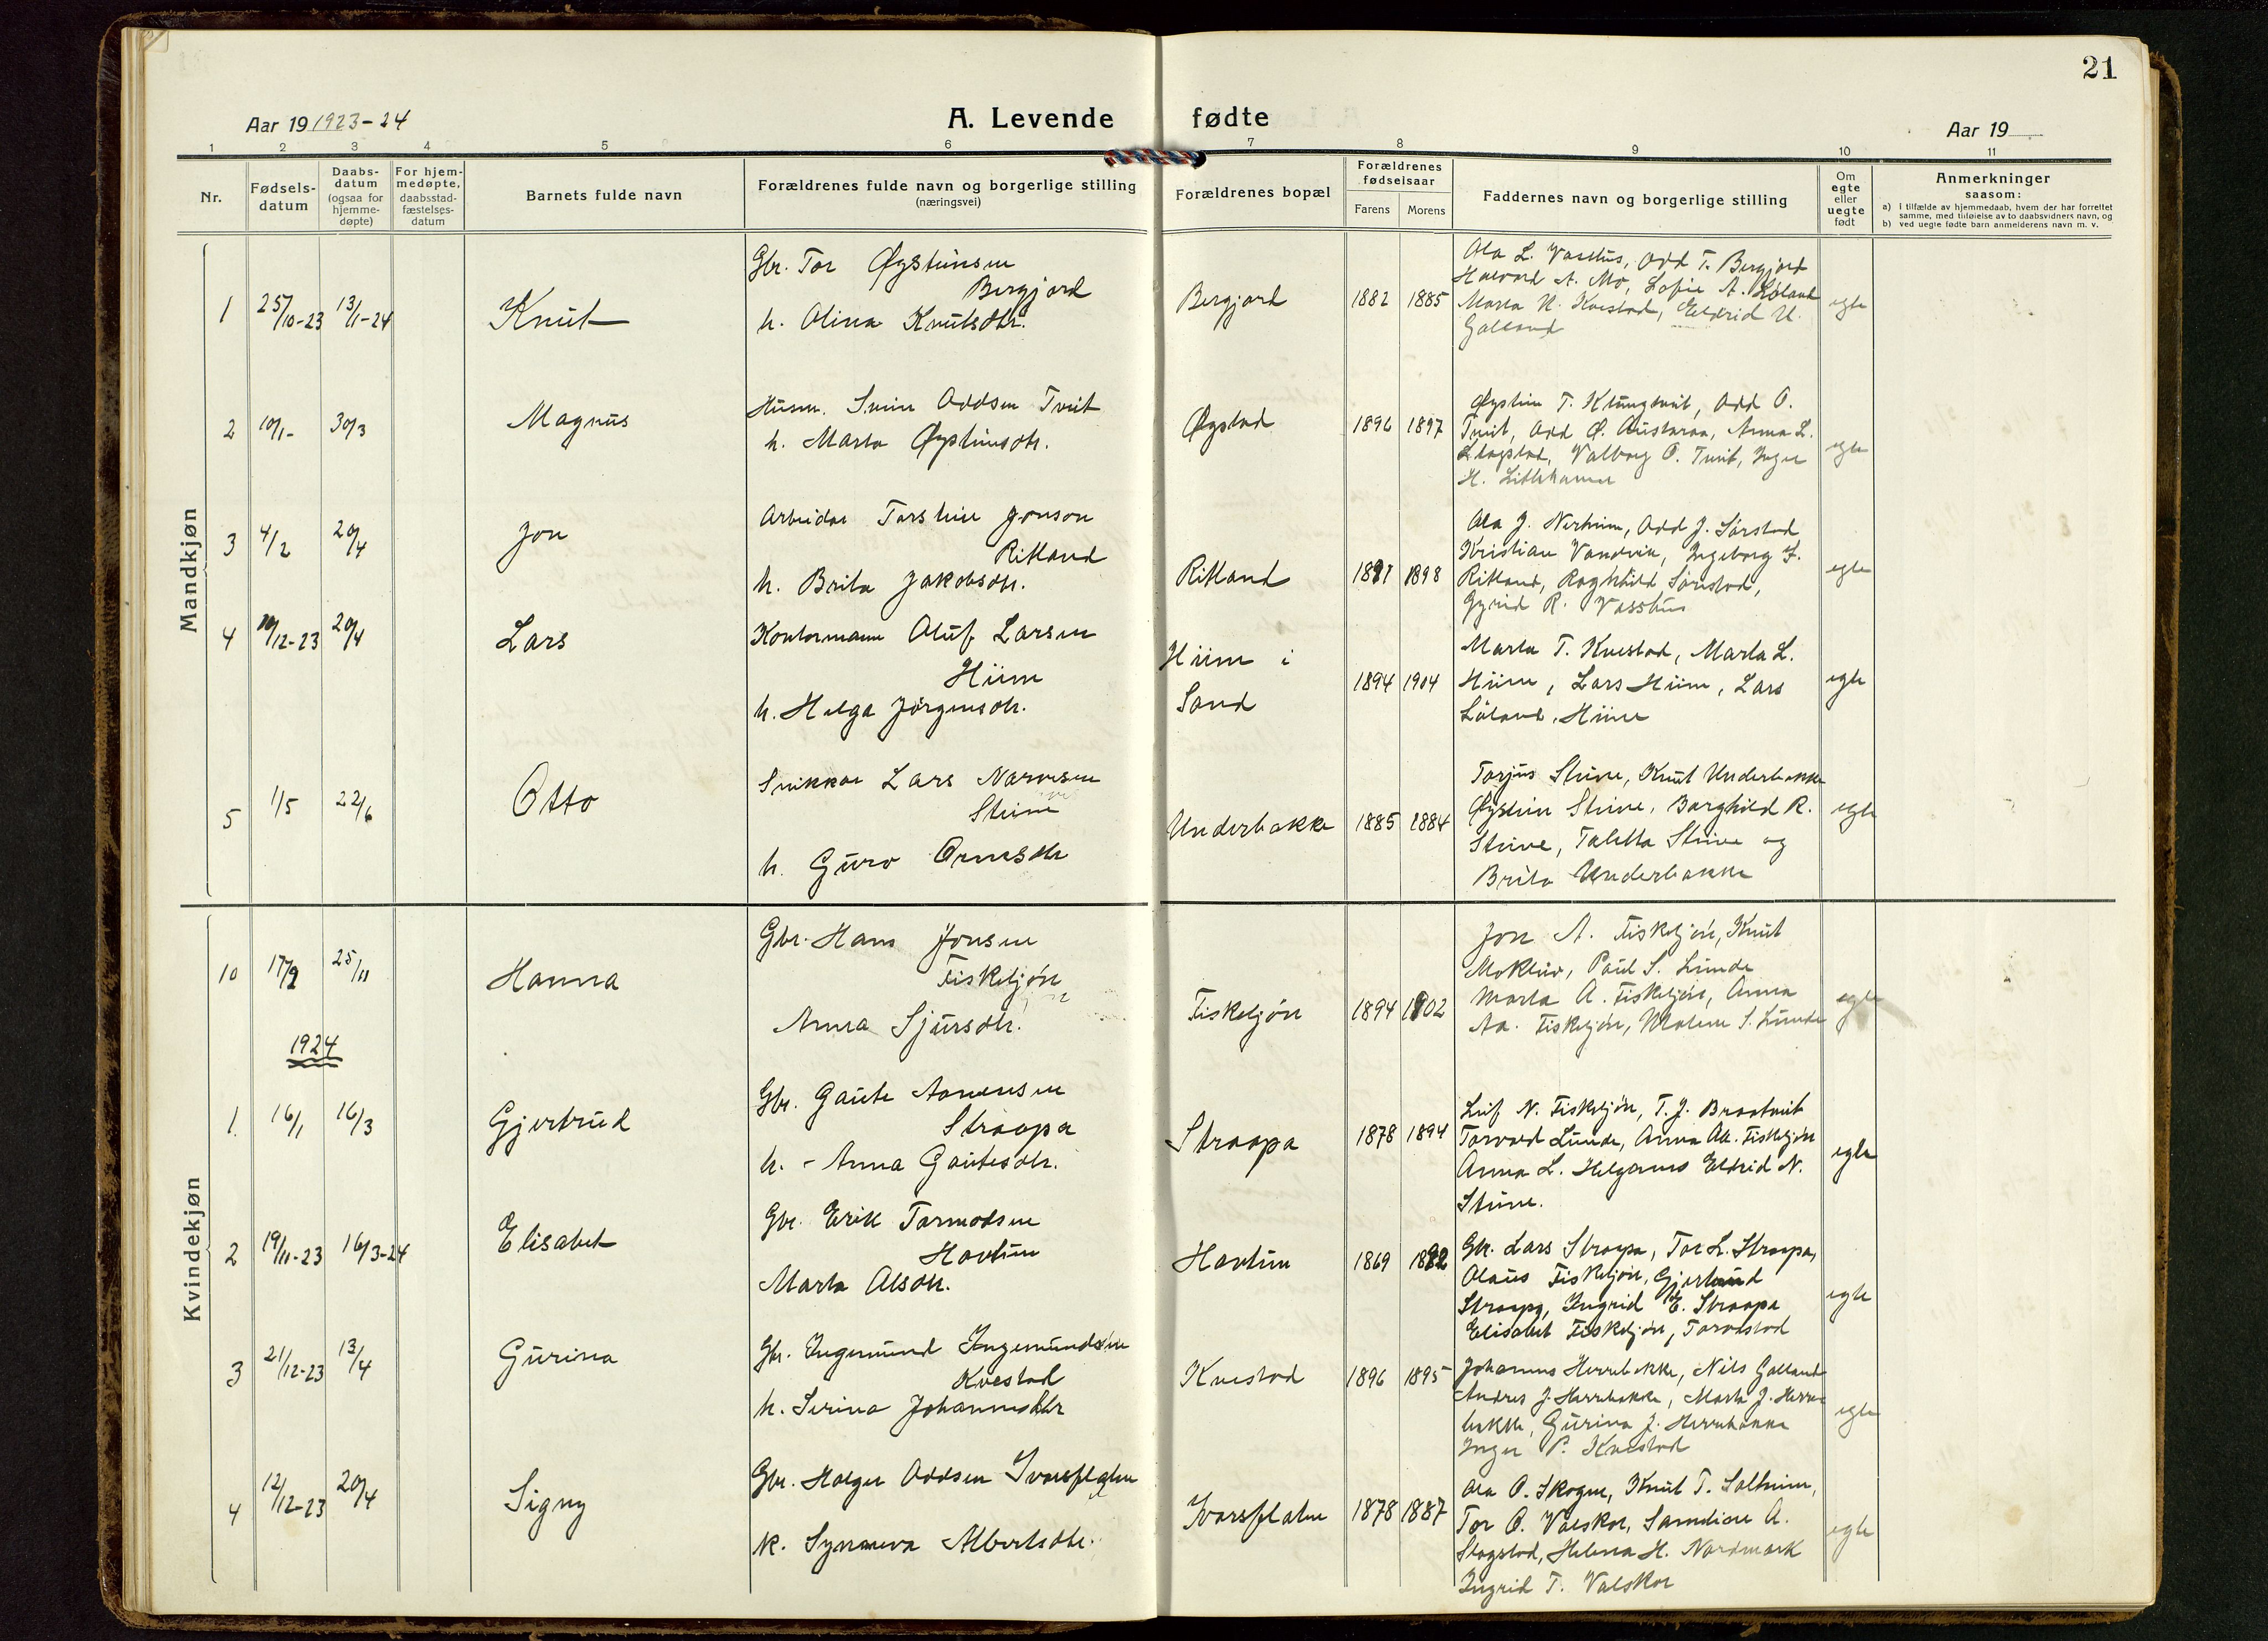 21
Aar 19 1923-24
A. Levende fødte
Aar 19
1 2 3 4 5 6 7 8 9 10 11
Nr.
Fødsels-
datum
Daabs-
datum
(ogsaa for
hjemme-
døpte)
For hjem-
medøpte,
daabsstad-
fæstelses-
datum
Barnets fulde navn
Forældrenes fulde navn og borgerlige stilling
(næringsvei)
Forældrenes bopæl
Forældrenes
fødselsaar
Farens Morens
Faddernes navn og borgerlige stilling
Om
egte
eller
uegte
født
Anmerkninger
saasom:
a) i tilfælde av hjemmedaab, hvem der har forrettet
samme, med tilføielse av to daabsvidners navn, og
b) ved uegte fødte barn anmelderens navn m. v.
Mandkjøn
1 25/10-23 13/1-24 Knut
Gbr. Tor Øysteinsen
Bergjord
h. Olina Knutsdtr.
Bergjord 1882 1885
Ola L. Vasshus, Odd T. Bergjord
Halvard A. Mo, Sofie A. Løland
Marta N. Kvestad, Eldrid N.
Galland
egte
2 10/1- 30/3 Magnus
Husm. Svein Oddsen Tveit
h. Marta Øysteinsdtr.
Øystad 1896 1897
Øystein T. Klungtveit, Odd O.
Tveit, Odd Ø. Austaraa, Anna L.
Slagstad, Valborg O. Tveit, Inger
H. Litlehamar
egte
3 4/2 20/4 Jon
Arbeidar Torstein Jonson
Ritland
h. Brita Jakobsdtr.
Ritland 1891 1898
Ola J. Nerheim, Odd J. Sørstad
Kristian Vandvik, Ingeborg T.
Ritland, Raghild Sørestad,
Gyrid R. Vasshus
egte
4 20/4 Lars
Kontormann Oluf Larsen
Hiim
h. Helga Jørgensdtr.
Hiim i
Sand
1894 1904
Marta T. Kvestad, Marta L.
Hiim, Lars Hiim, Lars
Løland, Hiim
egte
5 1/5 22/6 Otto
Snikkar Lars Narvesen
Steine
h. Guro Ormsdtr
Underbakke 1885 1884
Torjus Steine, Knut Underbakke
Øystein Steine, Borghild R.
Steine, Taletta Steine og
Brita Underbakke
egte
Kvindekjøn
10 17/9 25/11 Hanna
Gbr. Hans Jonsen
Fisketjøn
Anna Sjursdtr.
Fisketjøn 1894 1902
Jon A. Fisketjøn, Knut
Mokleiv, Paul S. Lunde
Marta A. Fisketjøn, Anna
Aa. Fisketjøn, Malene S. Lunde
egte
1924
1. 16/1 16/3 Gjertrud
Gbr. Gaute Aanensen
Straapa
h. - Anna Gautesdtr.
Straapa 1878 1894
Leif N. Fisketjøn, T. J. Braatveit
Torvald Lunde, Anna Aa. Fisketjøn
Anna L. Helganes Eldrid N.
Steine.
egte
2 19/11-23 16/3-24 Elisabet
Gbr. Erik Tormodsen
Havtun
Marta Olsdtr.
Havtun 1869 1882
Gbr. Lars Straapa, Tor L. Straapa,
Olaus Fisketjøn, Gjertrud
Straapa, Ingrid E. Straapa
Elisabet Fisketjøn, Torvestad
egte
3 21/12-23 13/4 Gurina
Gbr. Ingemund Ingemundsen
Kvestad
h. Serina Johannesdtr
Kvestad 1896 1895
Johannes Herrebakke, Nils Galland
Andres J. Herrebakke, Marta J. Herre
bakke, Gurina J. Herrebakke
Inger P. Kvestad
egte
4 12/12-23 20/4 Signy
Gbr. Holger Oddsen Ivarsflaten
k. Synneva Albertsdtr.
Ivarsflaten 1878 1887
Ola O. Skogen, Knut T. Solheim,
Tor O. Valskor, Samdine A.
Slagstad, Helena H. Nordmork
Ingrid T. Valskor
egte